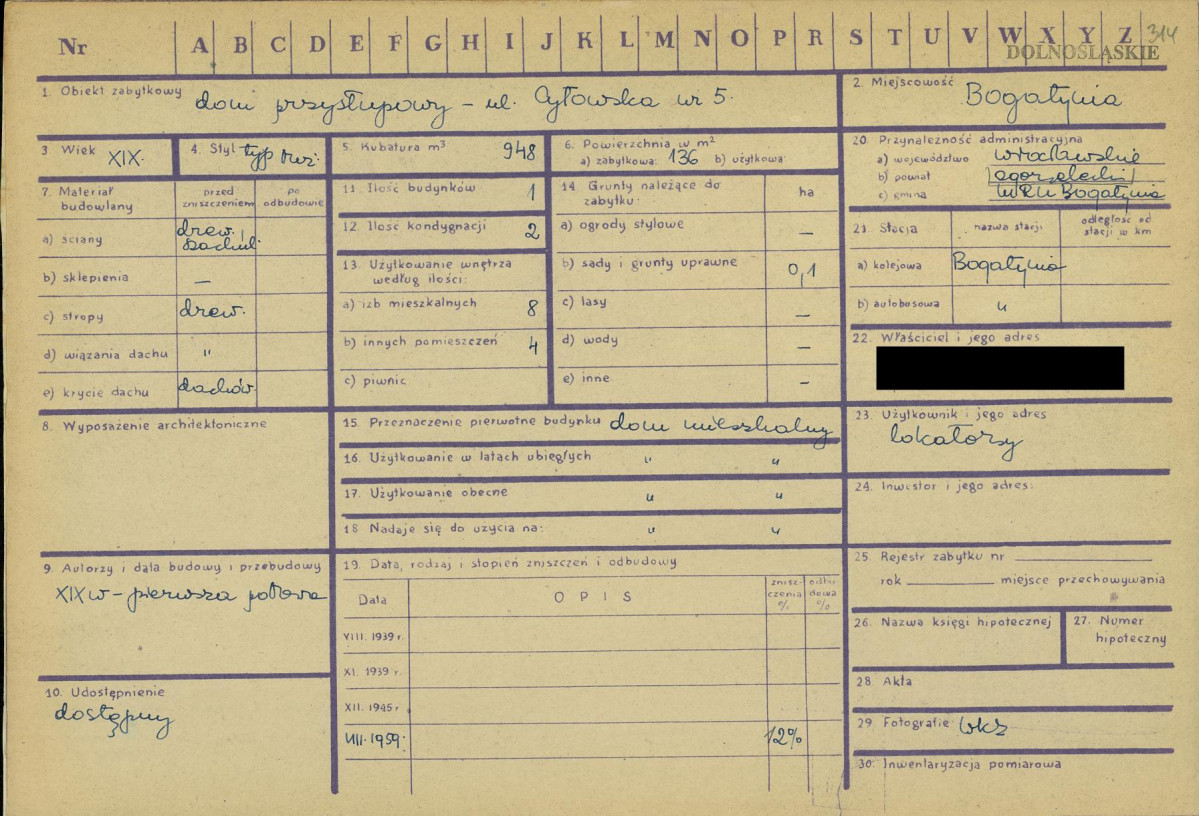 Nr A B C D E F G H I J K L M N O P R S T U V W X Y Z 314
DOLNOŚLĄSKIE
1. Obiekt zabytkowy dom przysłupowy – ul. Cytowska nr 5.
2. Miejscowość Bogatynia
3. Wiek XIX.
4. Styl typ
5. Kubatura m³ 948
6. Powierzchnia w m²
a) zabytkowa: 136 b) użytkowa:
20. Przynależność administracyjna
a) województwo wrocławskie
b) powiat zgorzelecki
c) gmina Bogatynia
7. Materiał budowlany
przed zniszczeniem
po odbudowie
a) ściany drew. szachul.
b) sklepienia –
c) stropy drew.
d) wiązania dachu "
e) krycie dachu dachów.
11. Ilość budynków 1
12. Ilość kondygnacji 2
13. Użytkowanie wnętrza
według ilości:
a) izb mieszkalnych 8
b) innych pomieszczeń 4
c) piwnic
14. Grunty należące do
zabytku: ha
a) ogrody stylowe –
b) sady i grunty uprawne 0,1
c) lasy –
d) wody –
e) inne –
21. Stacja nazwa stacji odległość od stacji w km
a) kolejowa Bogatynia
b) autobusowa "
22. Właściciel i jego adres
8. Wyposażenie architektoniczne
15. Przeznaczenie pierwotne budynku dom mieszkalny
16. Użytkowanie w latach ubiegłych " "
17. Użytkowanie obecne " "
18 Nadaje się do użycia na: " "
23. Użytkownik i jego adres
lokatorzy
24. Inwestor i jego adres:
9. Autorzy i data budowy i przebudowy
XIX w – pierwsza połowa
10. Udostępnienie
dostępny
19. Data, rodzaj i stopień zniszczeń i odbudowy
Data OPIS zniszczenia % odbudowa %
VIII. 1939 r.
XI. 1939 r.
XII. 1945 r
VIII. 1959. 12%
25. Rejestr zabytku nr
rok miejsce przechowywania
26. Nazwa księgi hipotecznej
27. Numer
hipoteczny
28. Akta
29. Fotografie WKZ
30. Inwentaryzacja pomiarowa